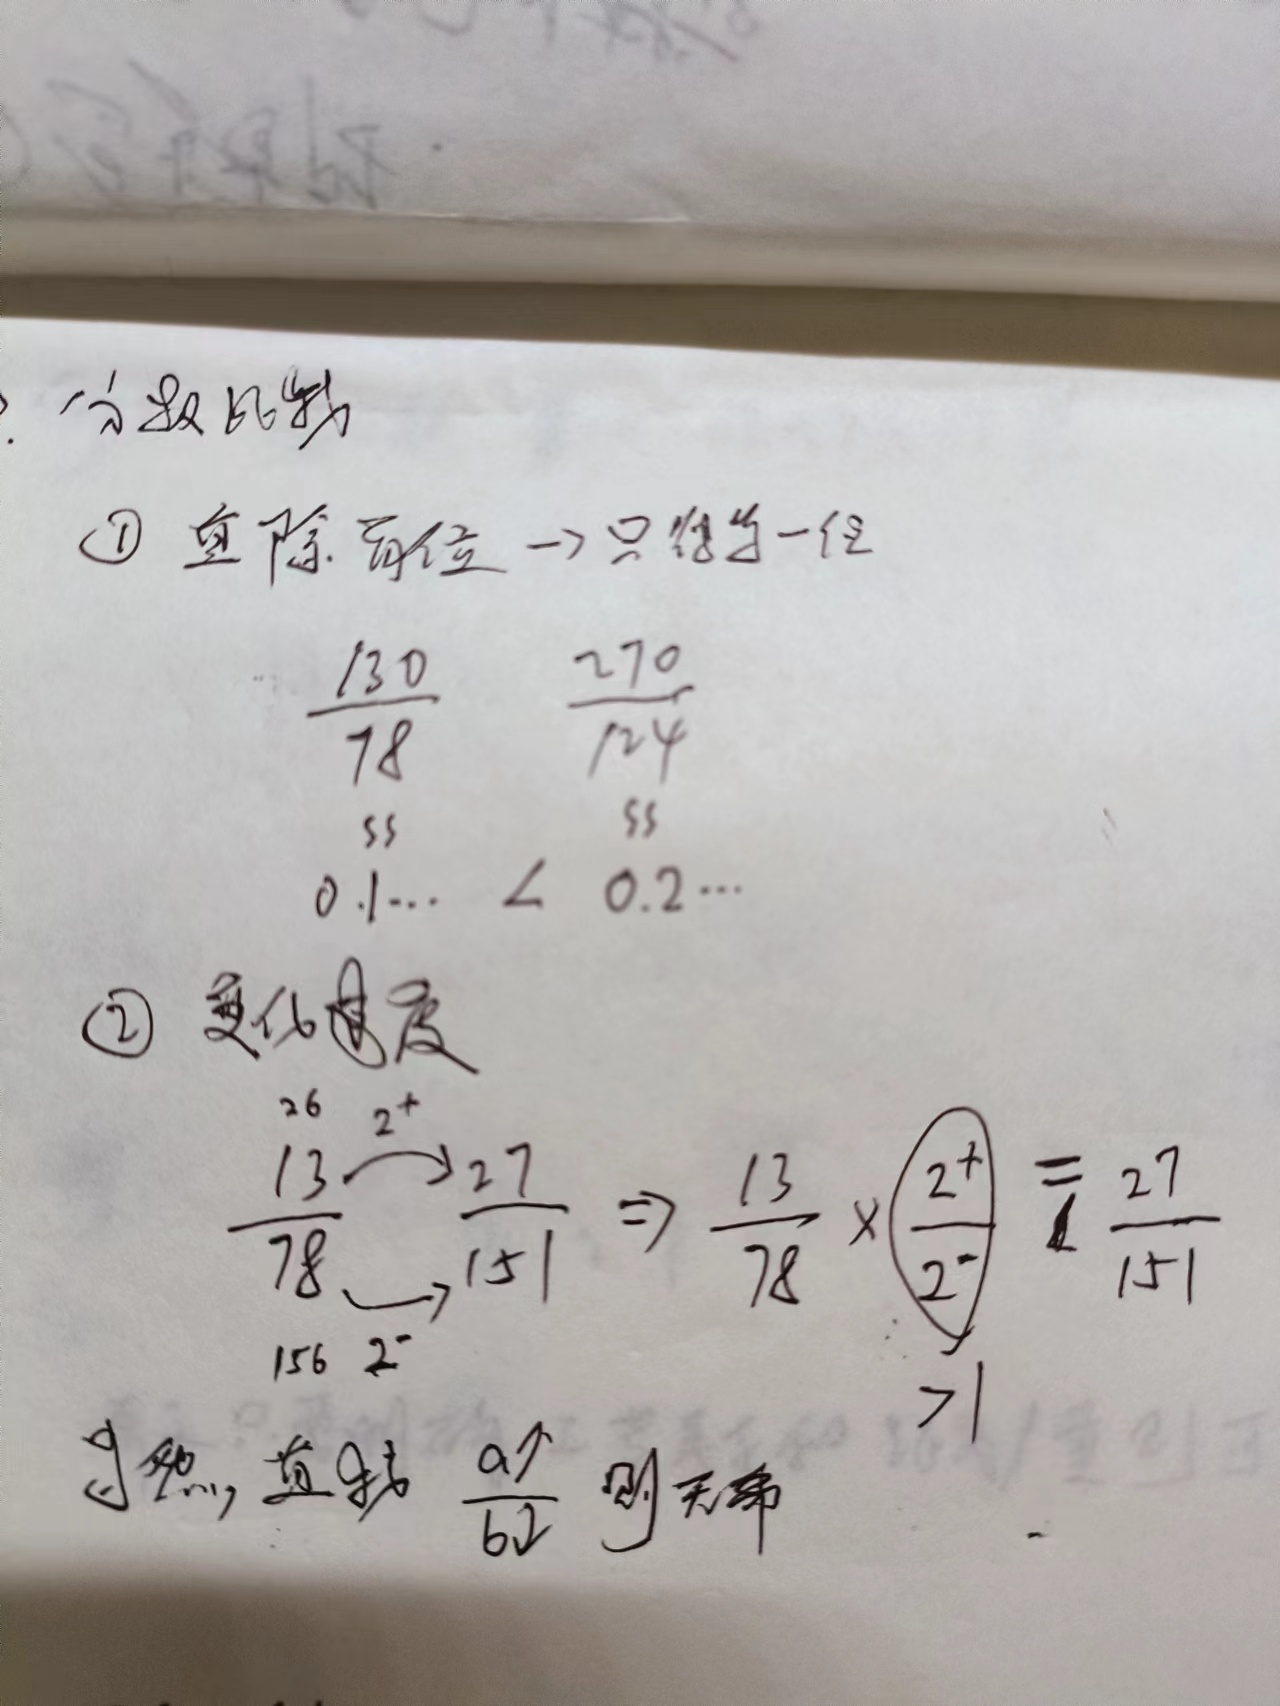 分数比较
① 直除首位 → 只看第一位
130/78 270/124
≈ ≈
0.1… < 0.2…
② 变化速度
26 2⁺
13/78 → 27/151 ⇒ 13/78 × 2⁺/2⁻ = 27/151
156 2⁻
>1
当然, 直接 a↑/b↓ 则无需